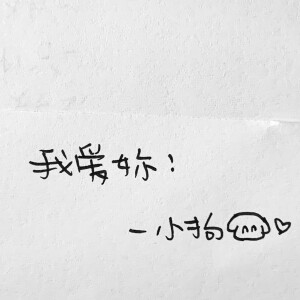 我爱妳!
一小狗